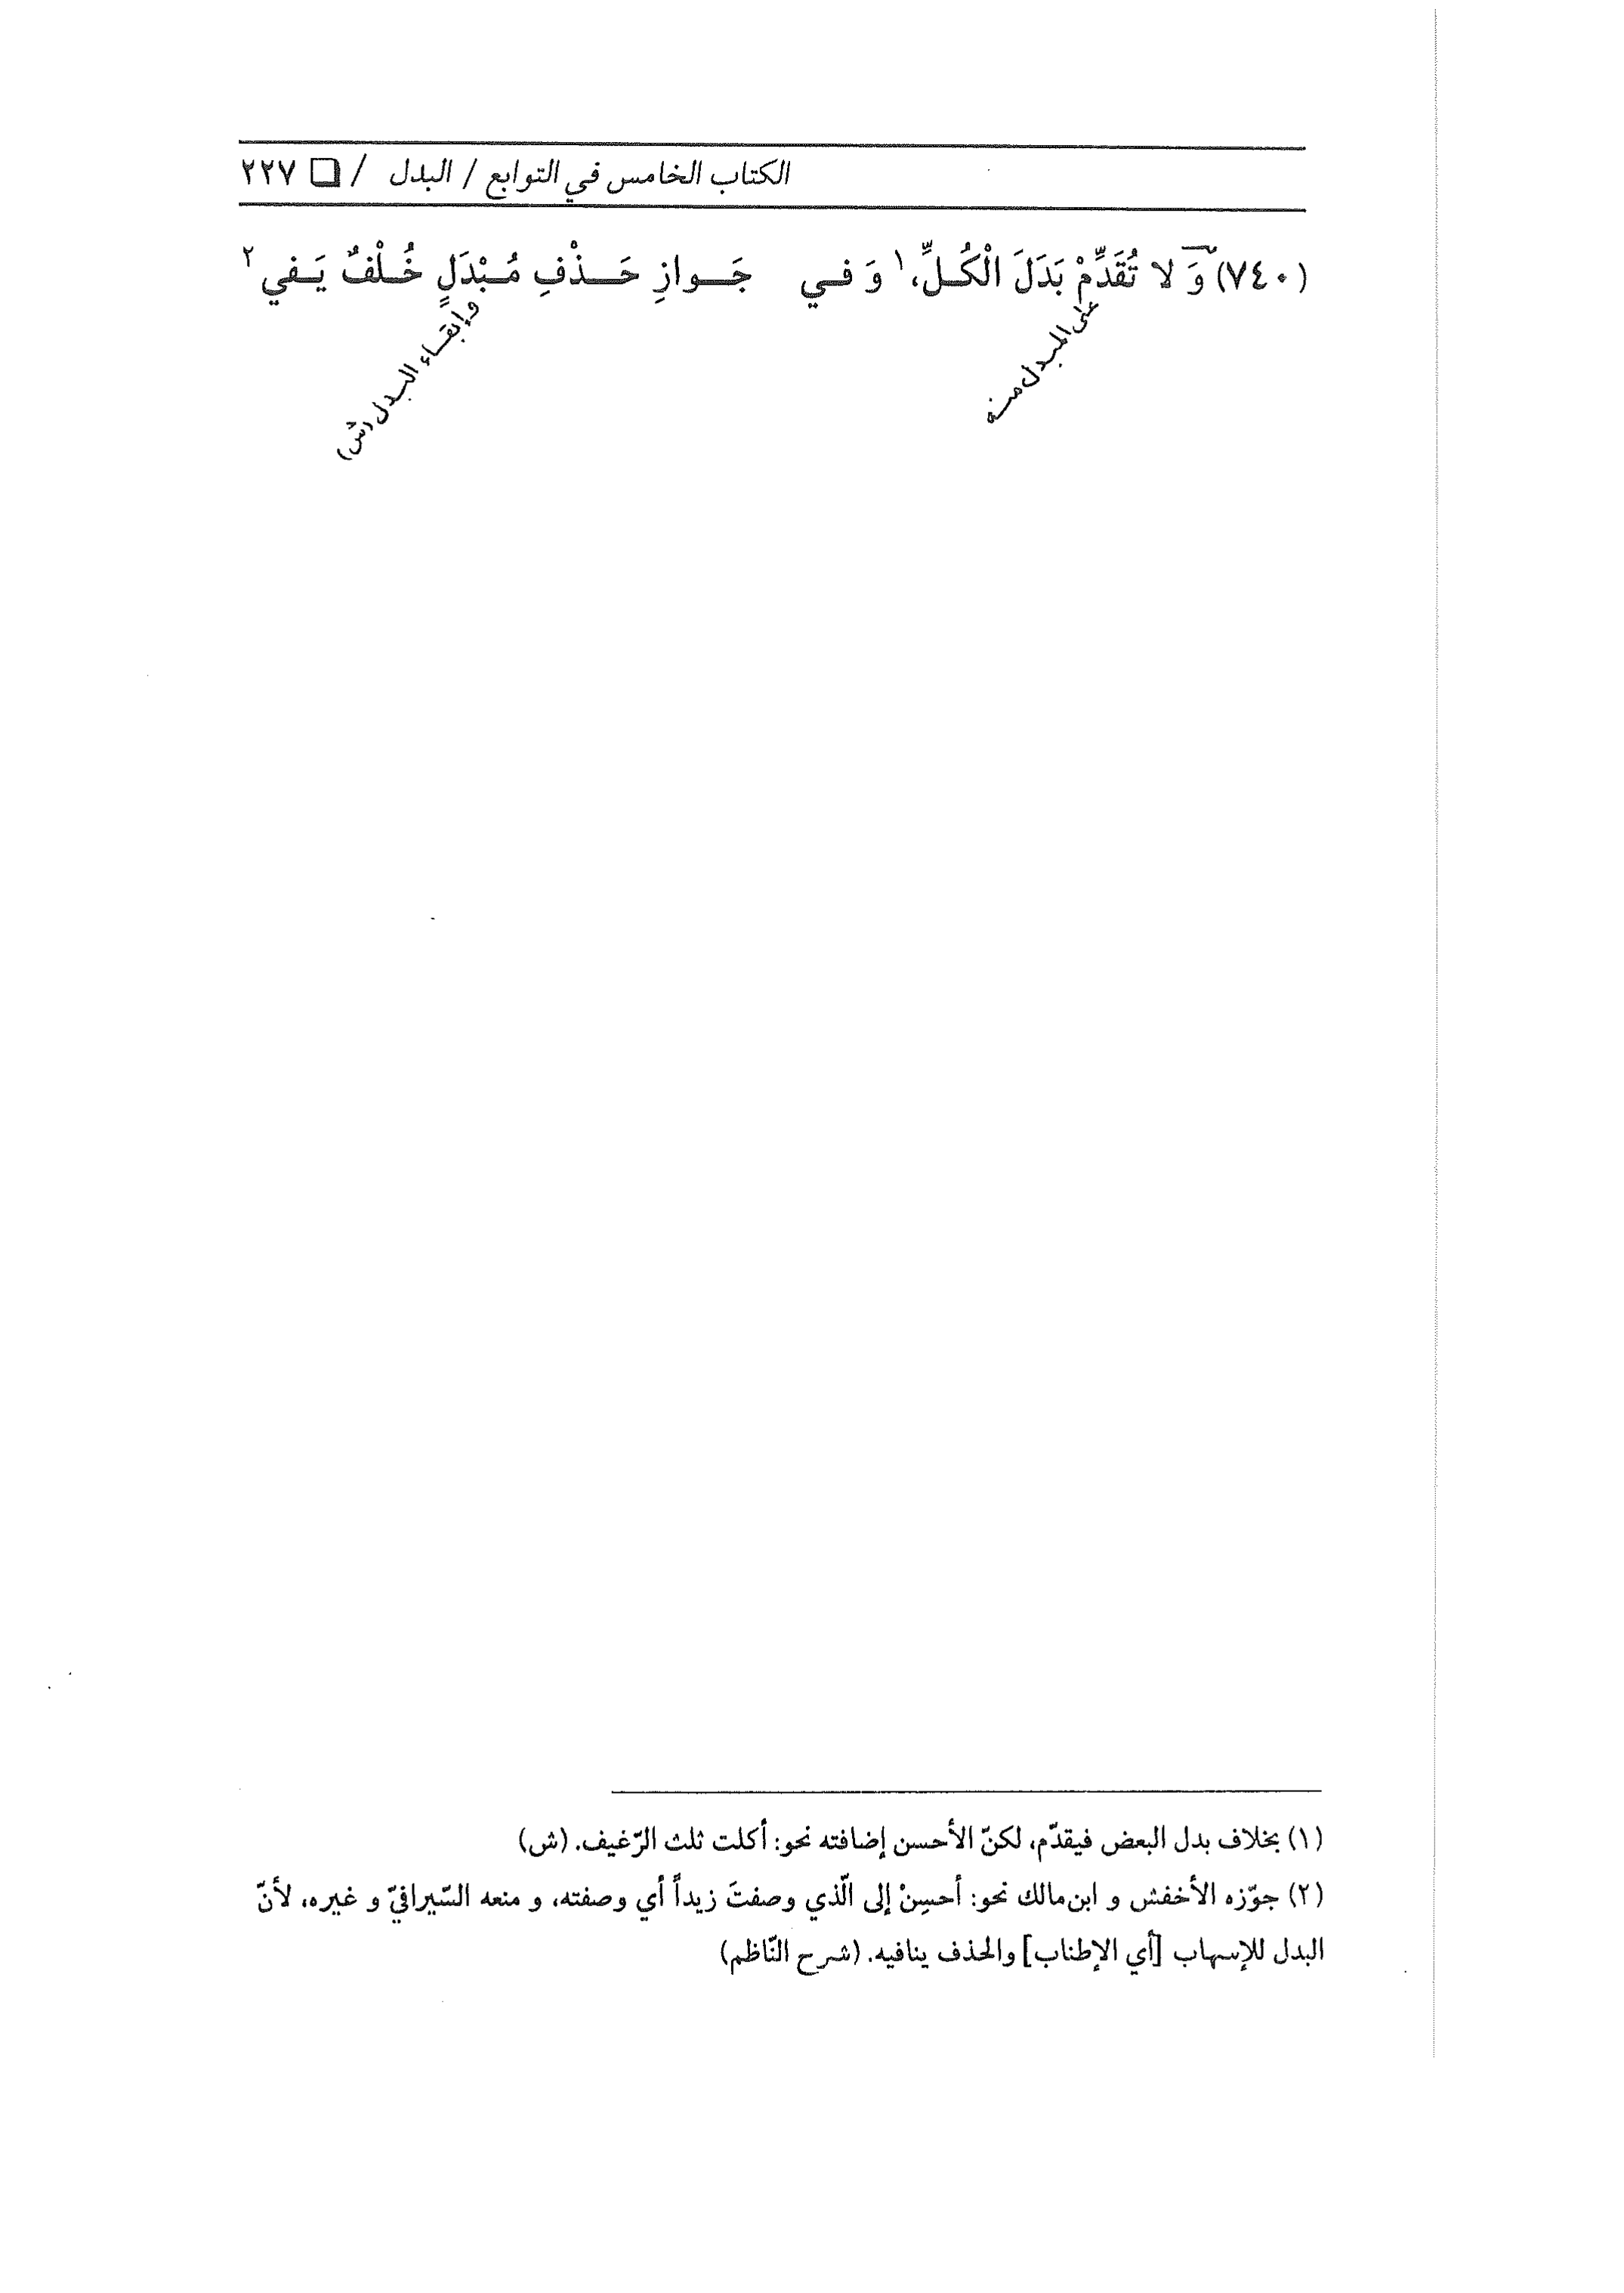 الكتاب الخامس في التوابع / البدل / ❏ ٢٢٧
(٧٤٠) وَ لا تُقَدِّمْ بَدَلَ الْكُلِّ،١ وَ في جَوازِ حَذْفِ مُبْدَلٍ خُلْفٌ يَفي ٢
على المبدل منه
وإبقاء البدل (ش)
(١) بخلاف بدل البعض فيقدّم، لكنّ الأحسن إضافته نحو: أكلت ثلث الرّغيف. (ش)
(٢) جوّزه الأخفش و ابن‌مالك نحو: أحسِنْ إلى الّذي وصفتَ زيداً أي وصفته، و منعه السّيرافيّ و غيره، لأنّ
البدل للإسهاب [أي الإطناب] والحذف ينافيه. (شرح النّاظم)